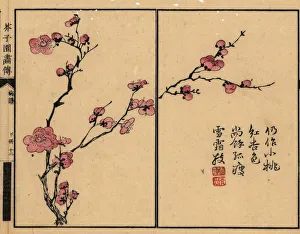 芥子園畫傳
仍作小桃
紅杏色
尚餘孤瘦
雪霜姿